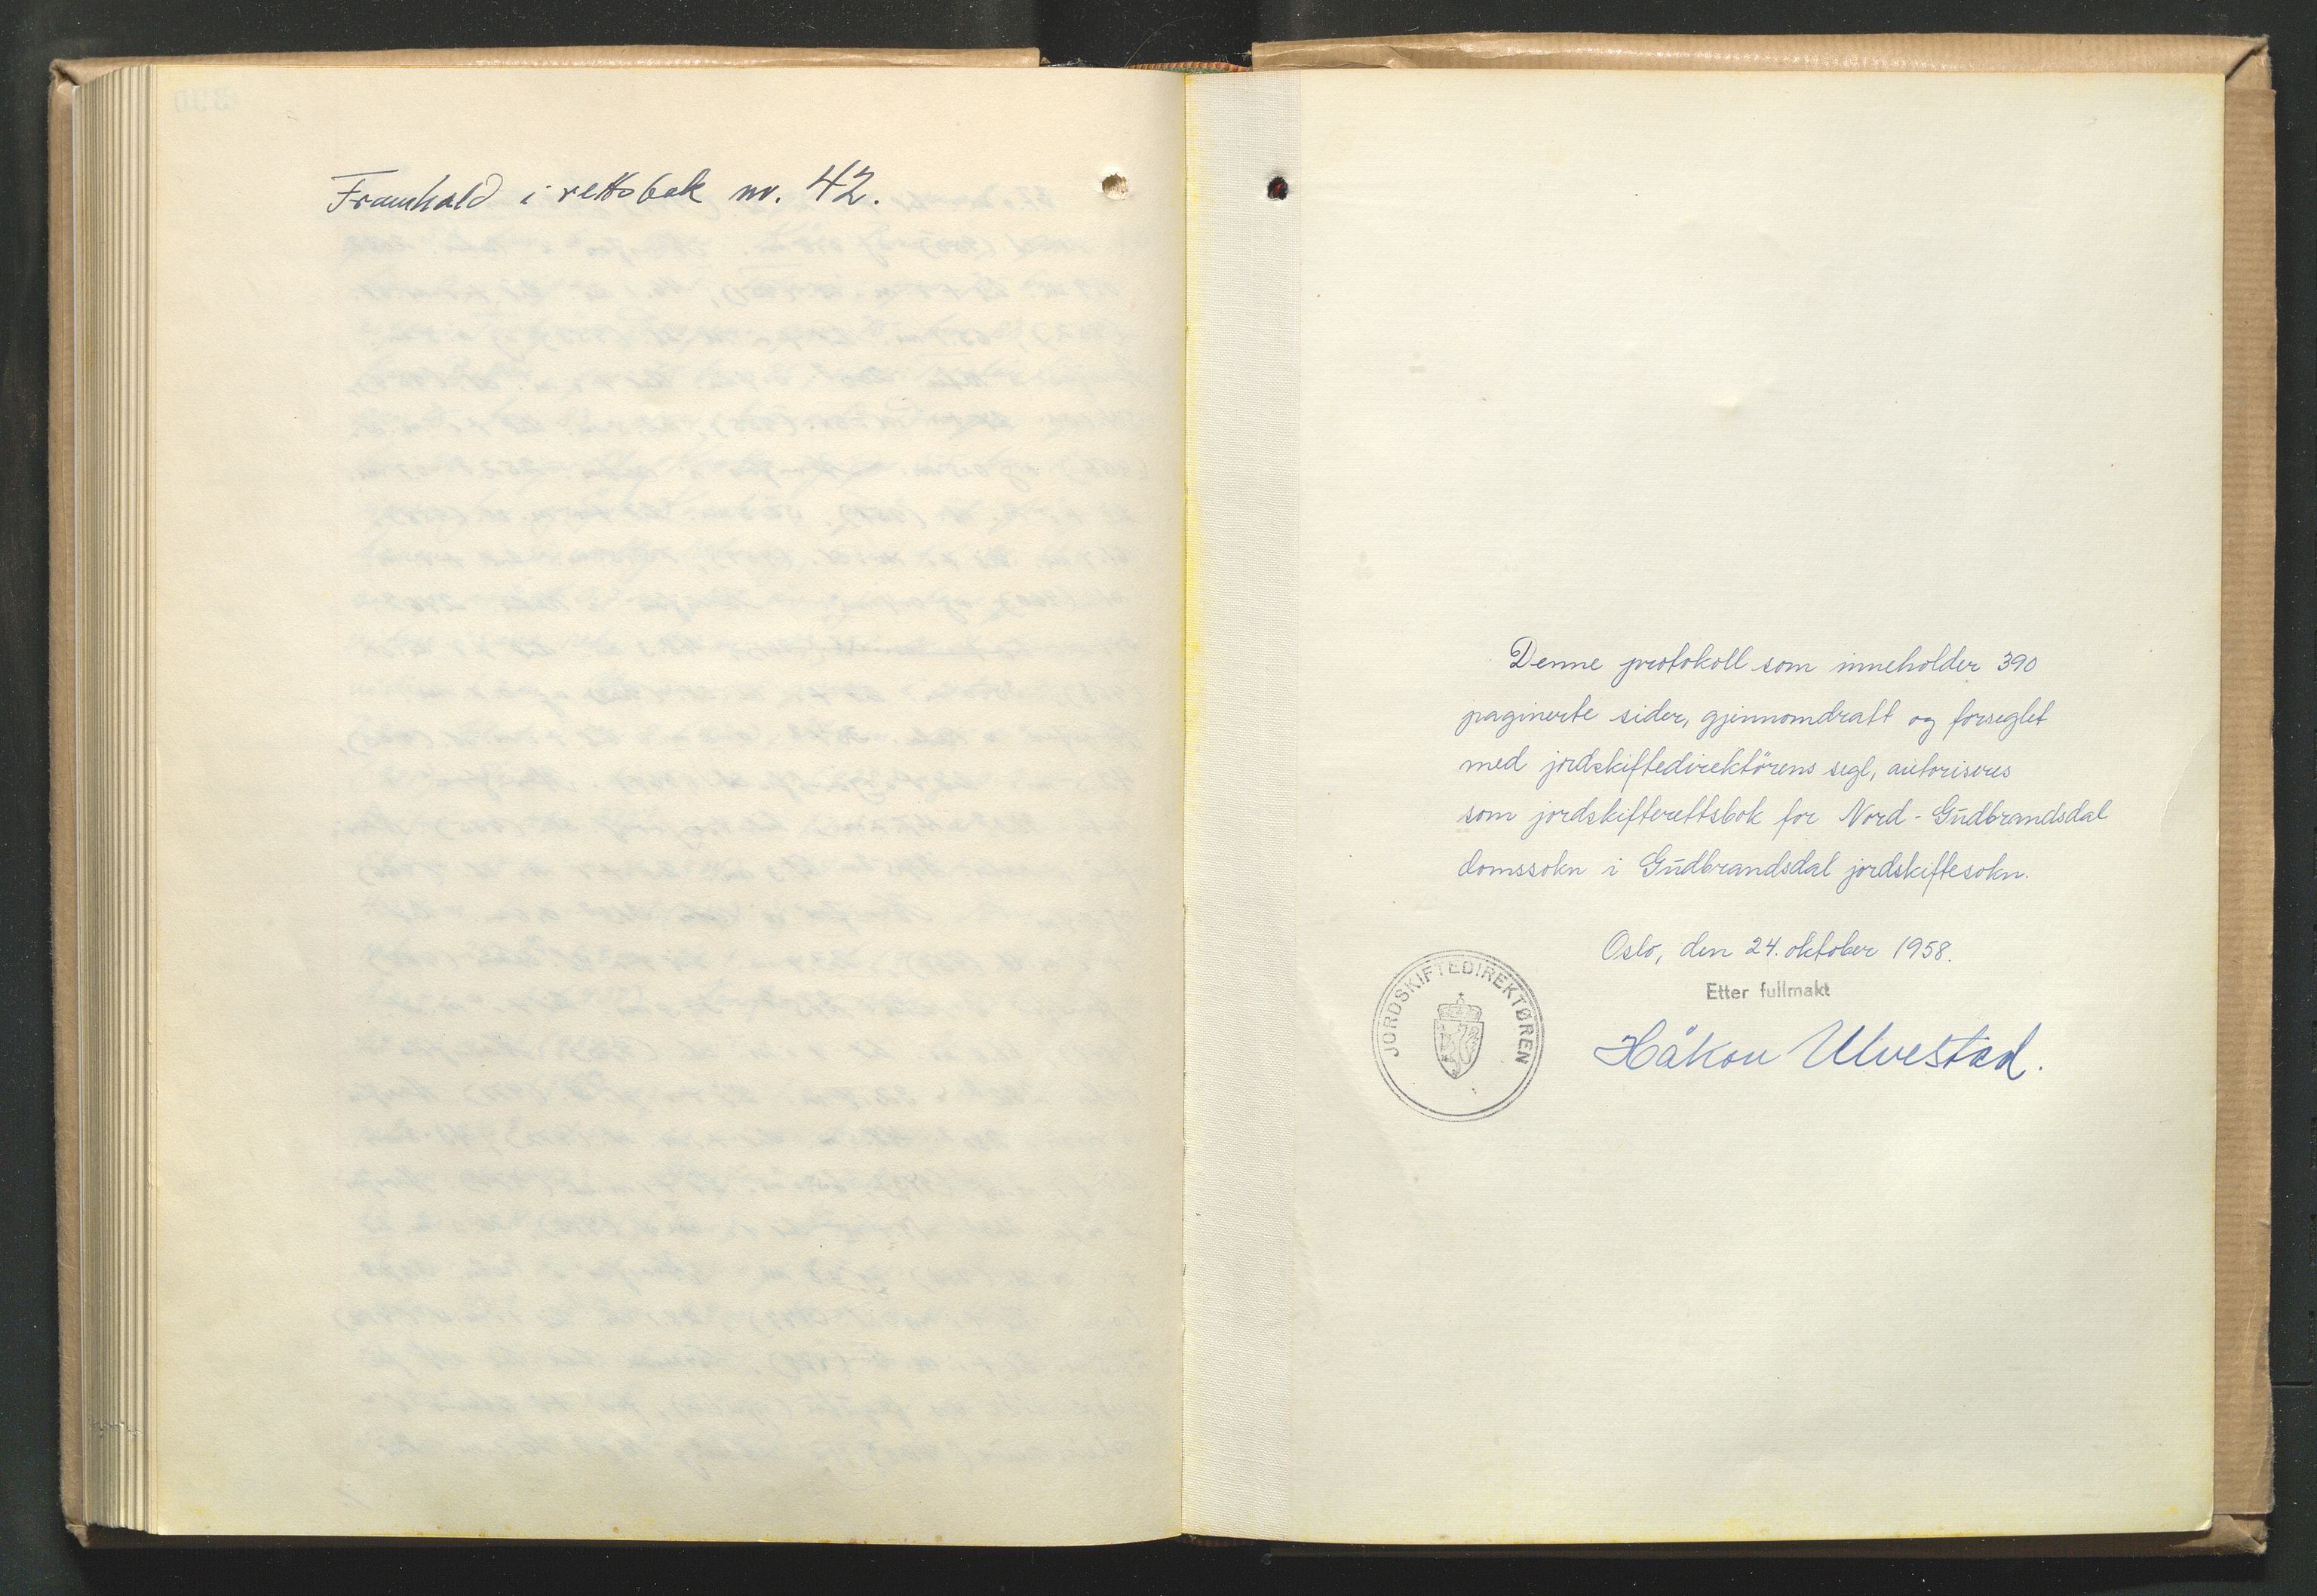 Framhald i rettsbok nr. 42.
Denne protokoll som inneholder 390
paginerte sider, gjennomdratt og forseglet
med jordskiftedirektörens segl, autoriseres
som jordskifterettsbok for Nord-Gudbrandsdal
domssokn i Gudbrandsdal jordskiftesokn.
Oslo, den 24. oktober 1958.
Etter fullmakt
Håkon Ulvestad.
JORDSKIFTEDIREKTØREN